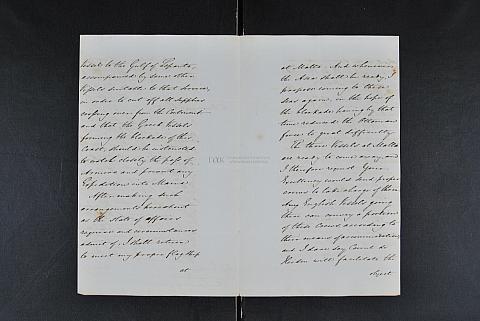 Vessels to the Gulf of Lepanto,
accompanied by some other
Vessels suitable to that service,
in order to cut off all supplies
crossing over from the Continent
and that the Greek Vessels
forming the blockade of this
Coast, should be instructed
to watch closely the pass of
Armiro and prevent any
Expedition into Maina.
After making such
arrangements
as the state of affairs
requires and circumstances
admit of, I shall return
to meet my proper flag ship
at
at Malta. And whenever
the Asia shall be ready, I
propose coming to these
seas again, in the hope of
the blockade having by that
time reduced the Ottoman
force to great difficulty.
The three Vessels at Malta
are ready to come away, and
I therefore request Your
Excellency would send proper
crews to take charge of them
Any English Vessels going
there can convey a portion
of these Crews according to
their means of accommodation,
and I dare say Count de
Heiden will facilitate the
object